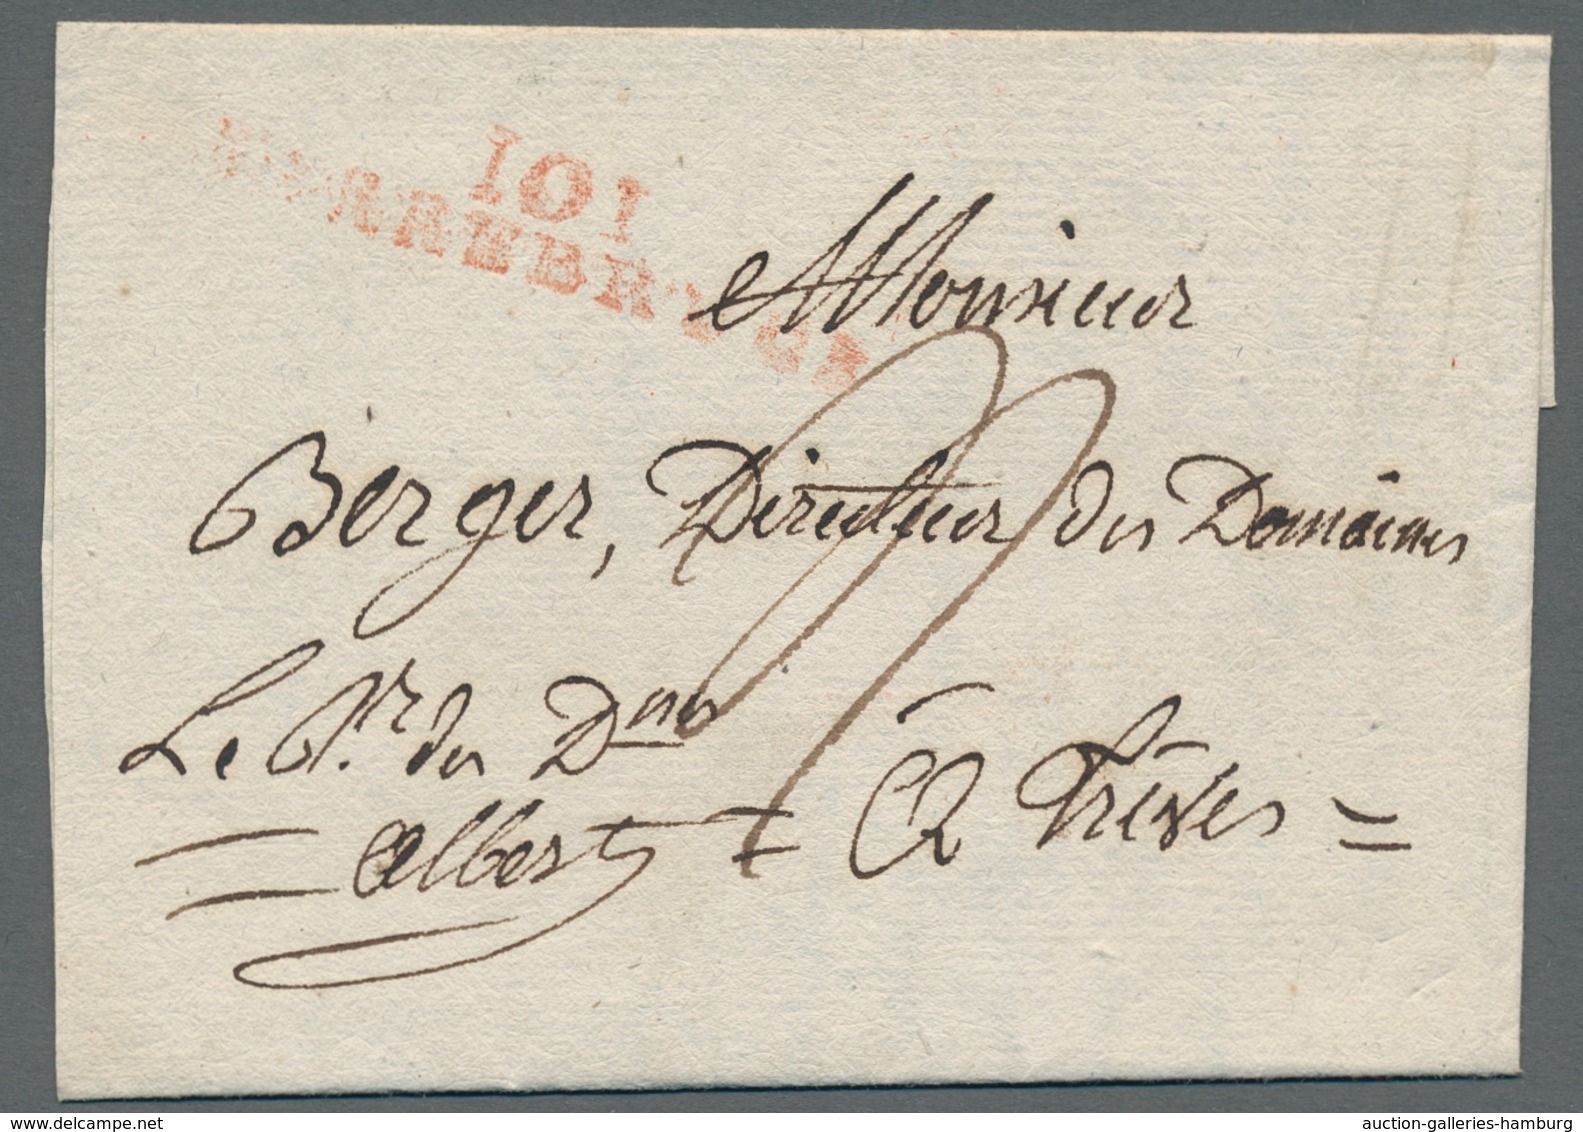 101
SARREBRUCK
Monsieur
Berger, Directeur des Domaines
Le R.r des D.nes
= Albert = A Trèves =
delcampe.net
auction-galleries-hamburg